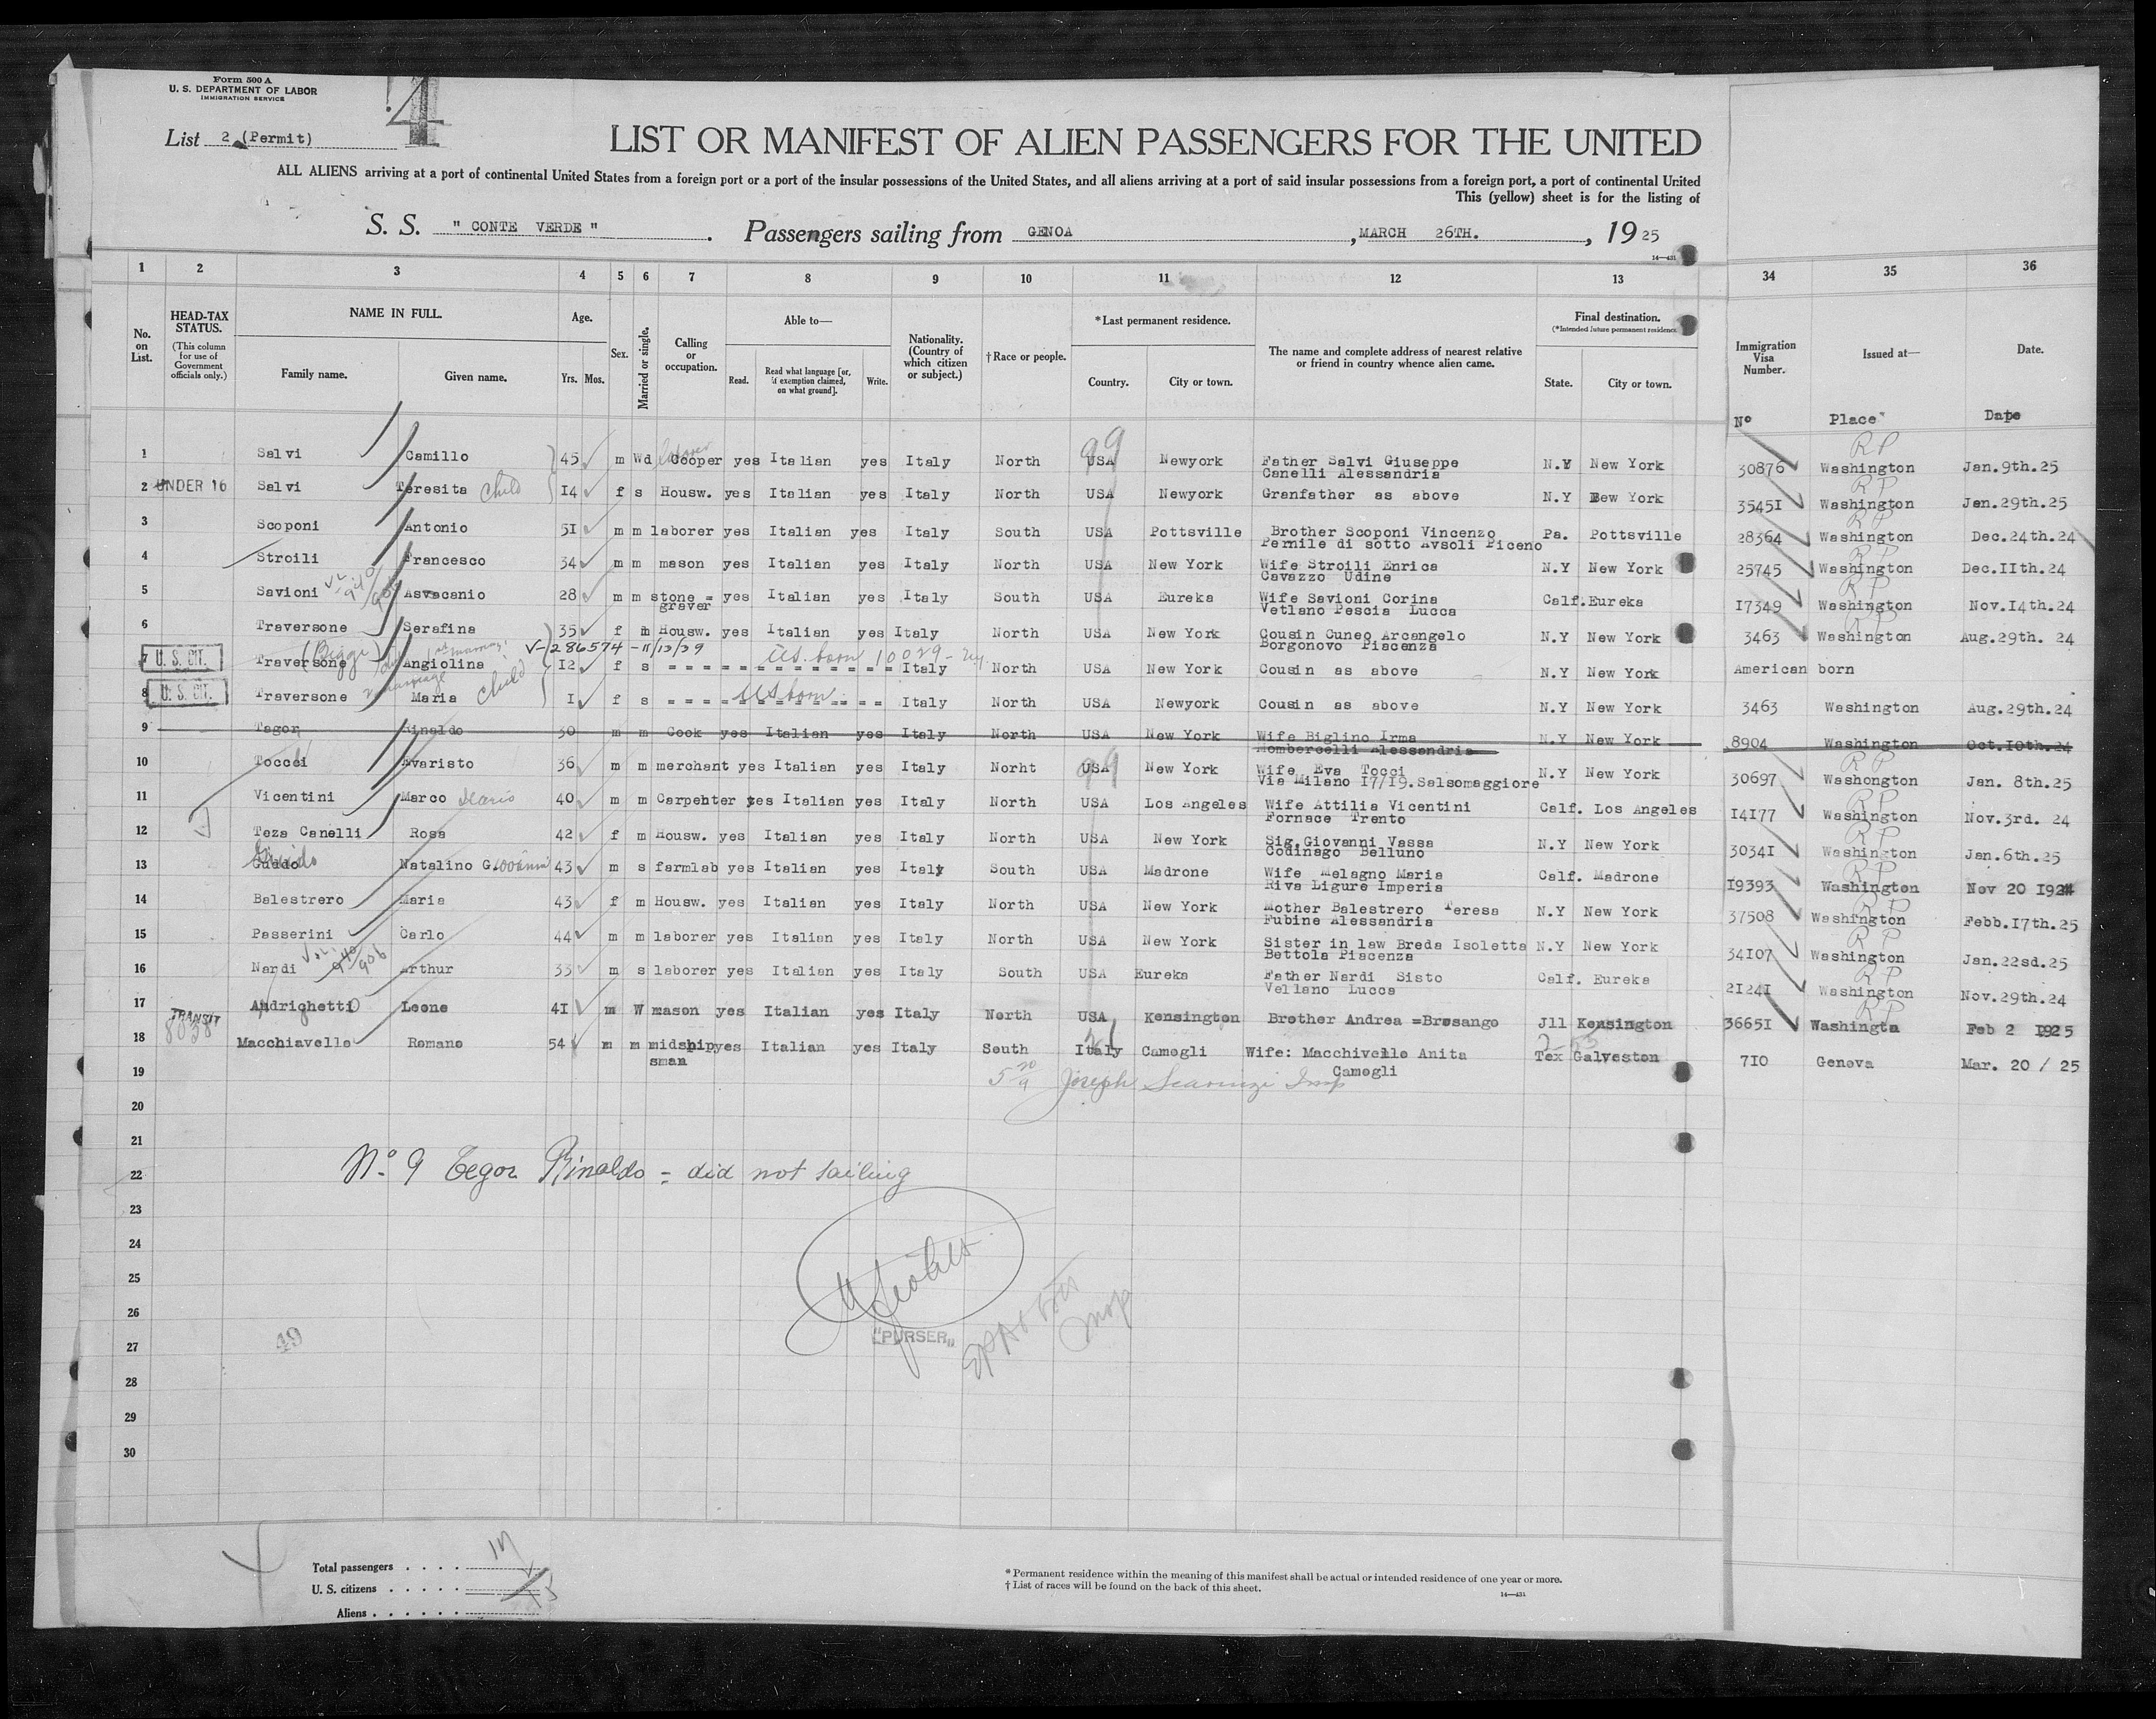 Form 500 A
U. S. DEPARTMENT OF LABOR
IMMIGRATION SERVICE
4
List 2 (Permit)
LIST OR MANIFEST OF ALIEN PASSENGERS FOR THE UNITED
ALL ALIENS arriving at a port of continental United States from a foreign port or a port of the insular possessions of the United States, and all aliens arriving at a port of said insular possessions from a foreign port, a port of continental United
This (yellow) sheet is for the listing of
S. S. " CONTE VERDE " . Passengers sailing from GENOA , MARCH 26TH. , 19 25
14—431
1 2 3 4 5 6 7 8 9 10 11 12 13 34 35 36
No. on List.
HEAD-TAX STATUS.
(This column for use of Government officials only.)
NAME IN FULL.
Family name. Given name.
Age.
Yrs. Mos.
Sex.
Married or single.
Calling or occupation.
Able to—
Read. Read what language [or, if exemption claimed, on what ground]. Write.
Nationality. (Country of which citizen or subject.)
†Race or people.
*Last permanent residence.
Country. City or town.
The name and complete address of nearest relative or friend in country whence alien came.
Final destination.
(*Intended future permanent residence.)
State. City or town.
Immigration Visa Number.
Issued at—
Date.
Nº Place Date
1 Salvi Camillo 45 m Wd laborer Cooper yes Italian yes Italy North USA 99 Newyork Father Salvi Giuseppe N.Y New York 30876 Washington RP Jan.9th.25
Canelli Alessandria
2 UNDER 16 Salvi Teresita Child 14 f s Housw. yes Italian yes Italy North USA Newyork Granfather as above N.Y Bew York 35451 Washington RP Jan.29th.25
3 Scoponi Antonio 51 m m laborer yes Italian yes Italy South USA Pottsville Brother Scoponi Vincenzo Pa. Pottsville 28364 Washington RP Dec.24th.24
Pernile di sotto Avsoli Piceno
4 Stroili Francesco 34 m m mason yes Italian yes Italy North USA New York Wife Stroili Enrica N.Y New York 25745 Washington RP Dec.IIth.24
Cavazzo Udine
5 Savioni Asvacanio 28 m m stone = yes Italian yes Italy South USA Eureka Wife Savioni Corina Calf. Eureka 17349 Washington RP Nov.14th.24
graver Vetlano Pescia Lucca
6 Traversone Serafina 35 f m Housw. yes Italian yes Italy North USA New York Cousin Cuneo Arcangelo N.Y New York 3463 Washington RP Aug.29th. 24
Borgonovo Piacenza
V-286574 - 11/13/39
7 U. S. CIT. Traversone Angiolina 12 f s U.S. born 10029 Italy North USA New York Cousin as above N.Y New York American born
8 U. S. CIT. Traversone Maria Child 1 f s US born Italy North USA Newyork Cousin as above N.Y New York 3463 Washington Aug.29th.24
9 Tagor Rinaldo 30 m m Cook yes Italian yes Italy North USA New York Wife Biglino Irma N.Y New York 8904 Washington Oct.10th.24
Mombercelli Alessandria
10 Toccci Avaristo 36 m m merchant yes Italian yes Italy Norht USA 99 New York Wife Eva Tocci N.Y New York 30697 Washongton RP Jan. 8th.25
Via Milano 17/19.Salsomaggiore
11 Vicentini Marco Ilario 40 m m Carpehter yes Italian yes Italy North USA Los Angeles Wife Attilia Vicentini Calf. Los Angeles 14177 Washington RP Nov.3rd. 24
Fornace Trento
12 Teza Canelli Rosa 42 f m Housw. yes Italian yes Italy North USA New York Sig.Giovanni Vassa N.Y New York 30341 Washington RP Jan.6th.25
Codinago Belluno
Guido
13 Guado Natalino Giovanni 43 m s farmlab yes Italian yes Italy South USA Madrone Wife Melagno Maria Calf. Madrone 19393 Washington RP Nov 20 1924
Riva Ligure Imperia
14 Balestrero Maria 43 f m Housw. yes Italian yes Italy North USA New York Mother Balestrero Teresa N.Y New York 37508 Washington RP Febb.17th.25
Fubine Alessandria
15 Passerini Carlo 44 m m laborer yes Italian yes Italy North USA New York Sister in law Breda Isoletta N.Y New York 34107 Washington RP Jan.22sd.25
Bettola Piacenza
16 Nardi Arthur 33 m s laborer yes Italian yes Italy South USA Eureka Father Nardi Sisto Calf. Eureka 21241 Washington RP Nov.29th.24
Vellano Lucca
17 Andrighetti Leone 41 m W mason yes Italian yes Italy North USA Kensington Brother Andrea =Brosango Jll Kensington 36651 Washingtn RP Feb 2 1925
TRANSIT
8038
18 Macchiavello Romano 54 m m midship yes Italian yes Italy South Italy Camogli Wife: Macchivello Anita Tex Galveston 710 Geneva Mar. 20 / 25
sman Camogli
19 Joseph Scarinzi Insp
20
21
22 Nº 9 Tegor Rinaldo = did not sailing
23
24
25
26
27 49 "PURSER" Insp
28
29
30
Total passengers . . . . 17
U. S. citizens . . . . .
Aliens . . . . . . 15
* Permanent residence within the meaning of this manifest shall be actual or intended residence of one year or more.
† List of races will be found on the back of this sheet.
14—431